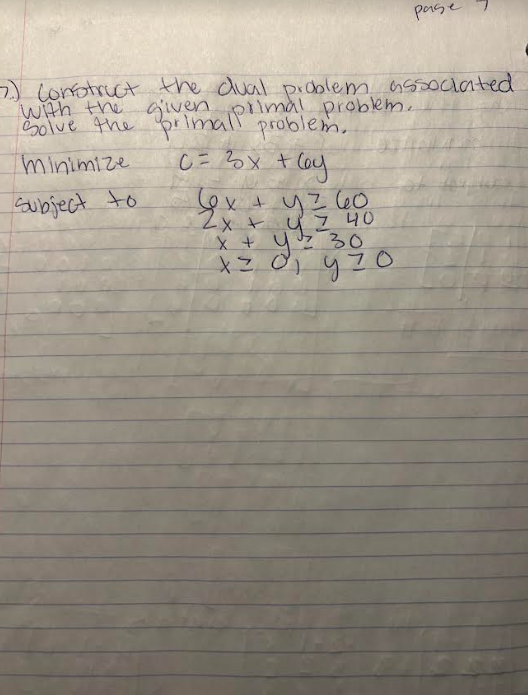 page 7
7.) Construct the dual problem associated
with the given primal problem.
Solve the primall problem.
Minimize C = 3x + 6y
Subject to 6x + y ≥ 60
2x + y ≥ 40
x + y ≥ 30
x ≥ 0, y ≥ 0